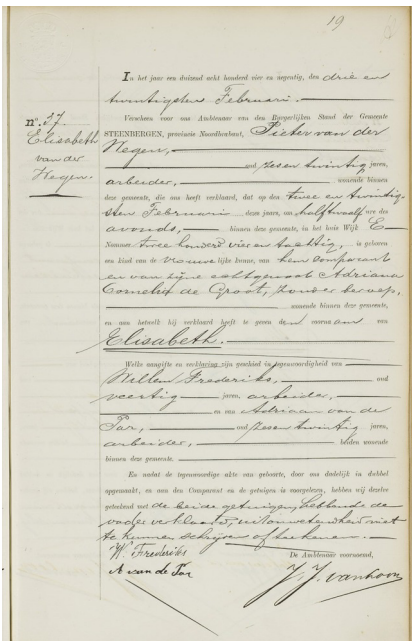 19
In het jaar een duizend acht honderd vier en negentig, den drie en
twintigsten Februari.
Verscheen voor ons Ambtenaar van den Burgerlijken Stand der Gemeente
nº. 37.
Elisabeth
van der
Wegen.
STEENBERGEN, provincie Noordbrabant, Pieter van der
Wegen,
oud zes en twintig jaren,
arbeider, wonende binnen
deze gemeente, die ons heeft verklaard, dat op den twee en twintig-
sten Februari dezes jaars, om half twaalf ure des
avonds, binnen deze gemeente, in het huis Wijk E
Nummer twee honderd vier en tachtig, is geboren
een kind van de vrouwelijke kunne, van hem comparant
en van zijne echtgenoot Adriana
Cornelia de Groot, zonder beroep,
wonende binnen deze gemeente,
en aan hetwelk hij verklaard heeft te geven den voornaam van
Elisabeth.
Welke aangifte en verklaring zijn geschied in tegenwoordigheid van
Willem Frederiks, oud
veertig jaren, arbeider,
en van Adriaan van de
Par, oud zes en twintig jaren,
arbeider, beiden wonende
binnen deze gemeente.
En nadat de tegenwoordige akte van geboorte, door ons dadelijk in dubbel
opgemaakt, en aan den Comparant en de getuigen is voorgelezen, hebben wij dezelve
geteekend met de beide getuigen, hebbende de
vader verklaard, uit onwetendheid niet
te kunnen schrijven of teekenen.
W. Frederiks
De Ambtenaar voornoemd,
A van de Par
J. J. van Loon